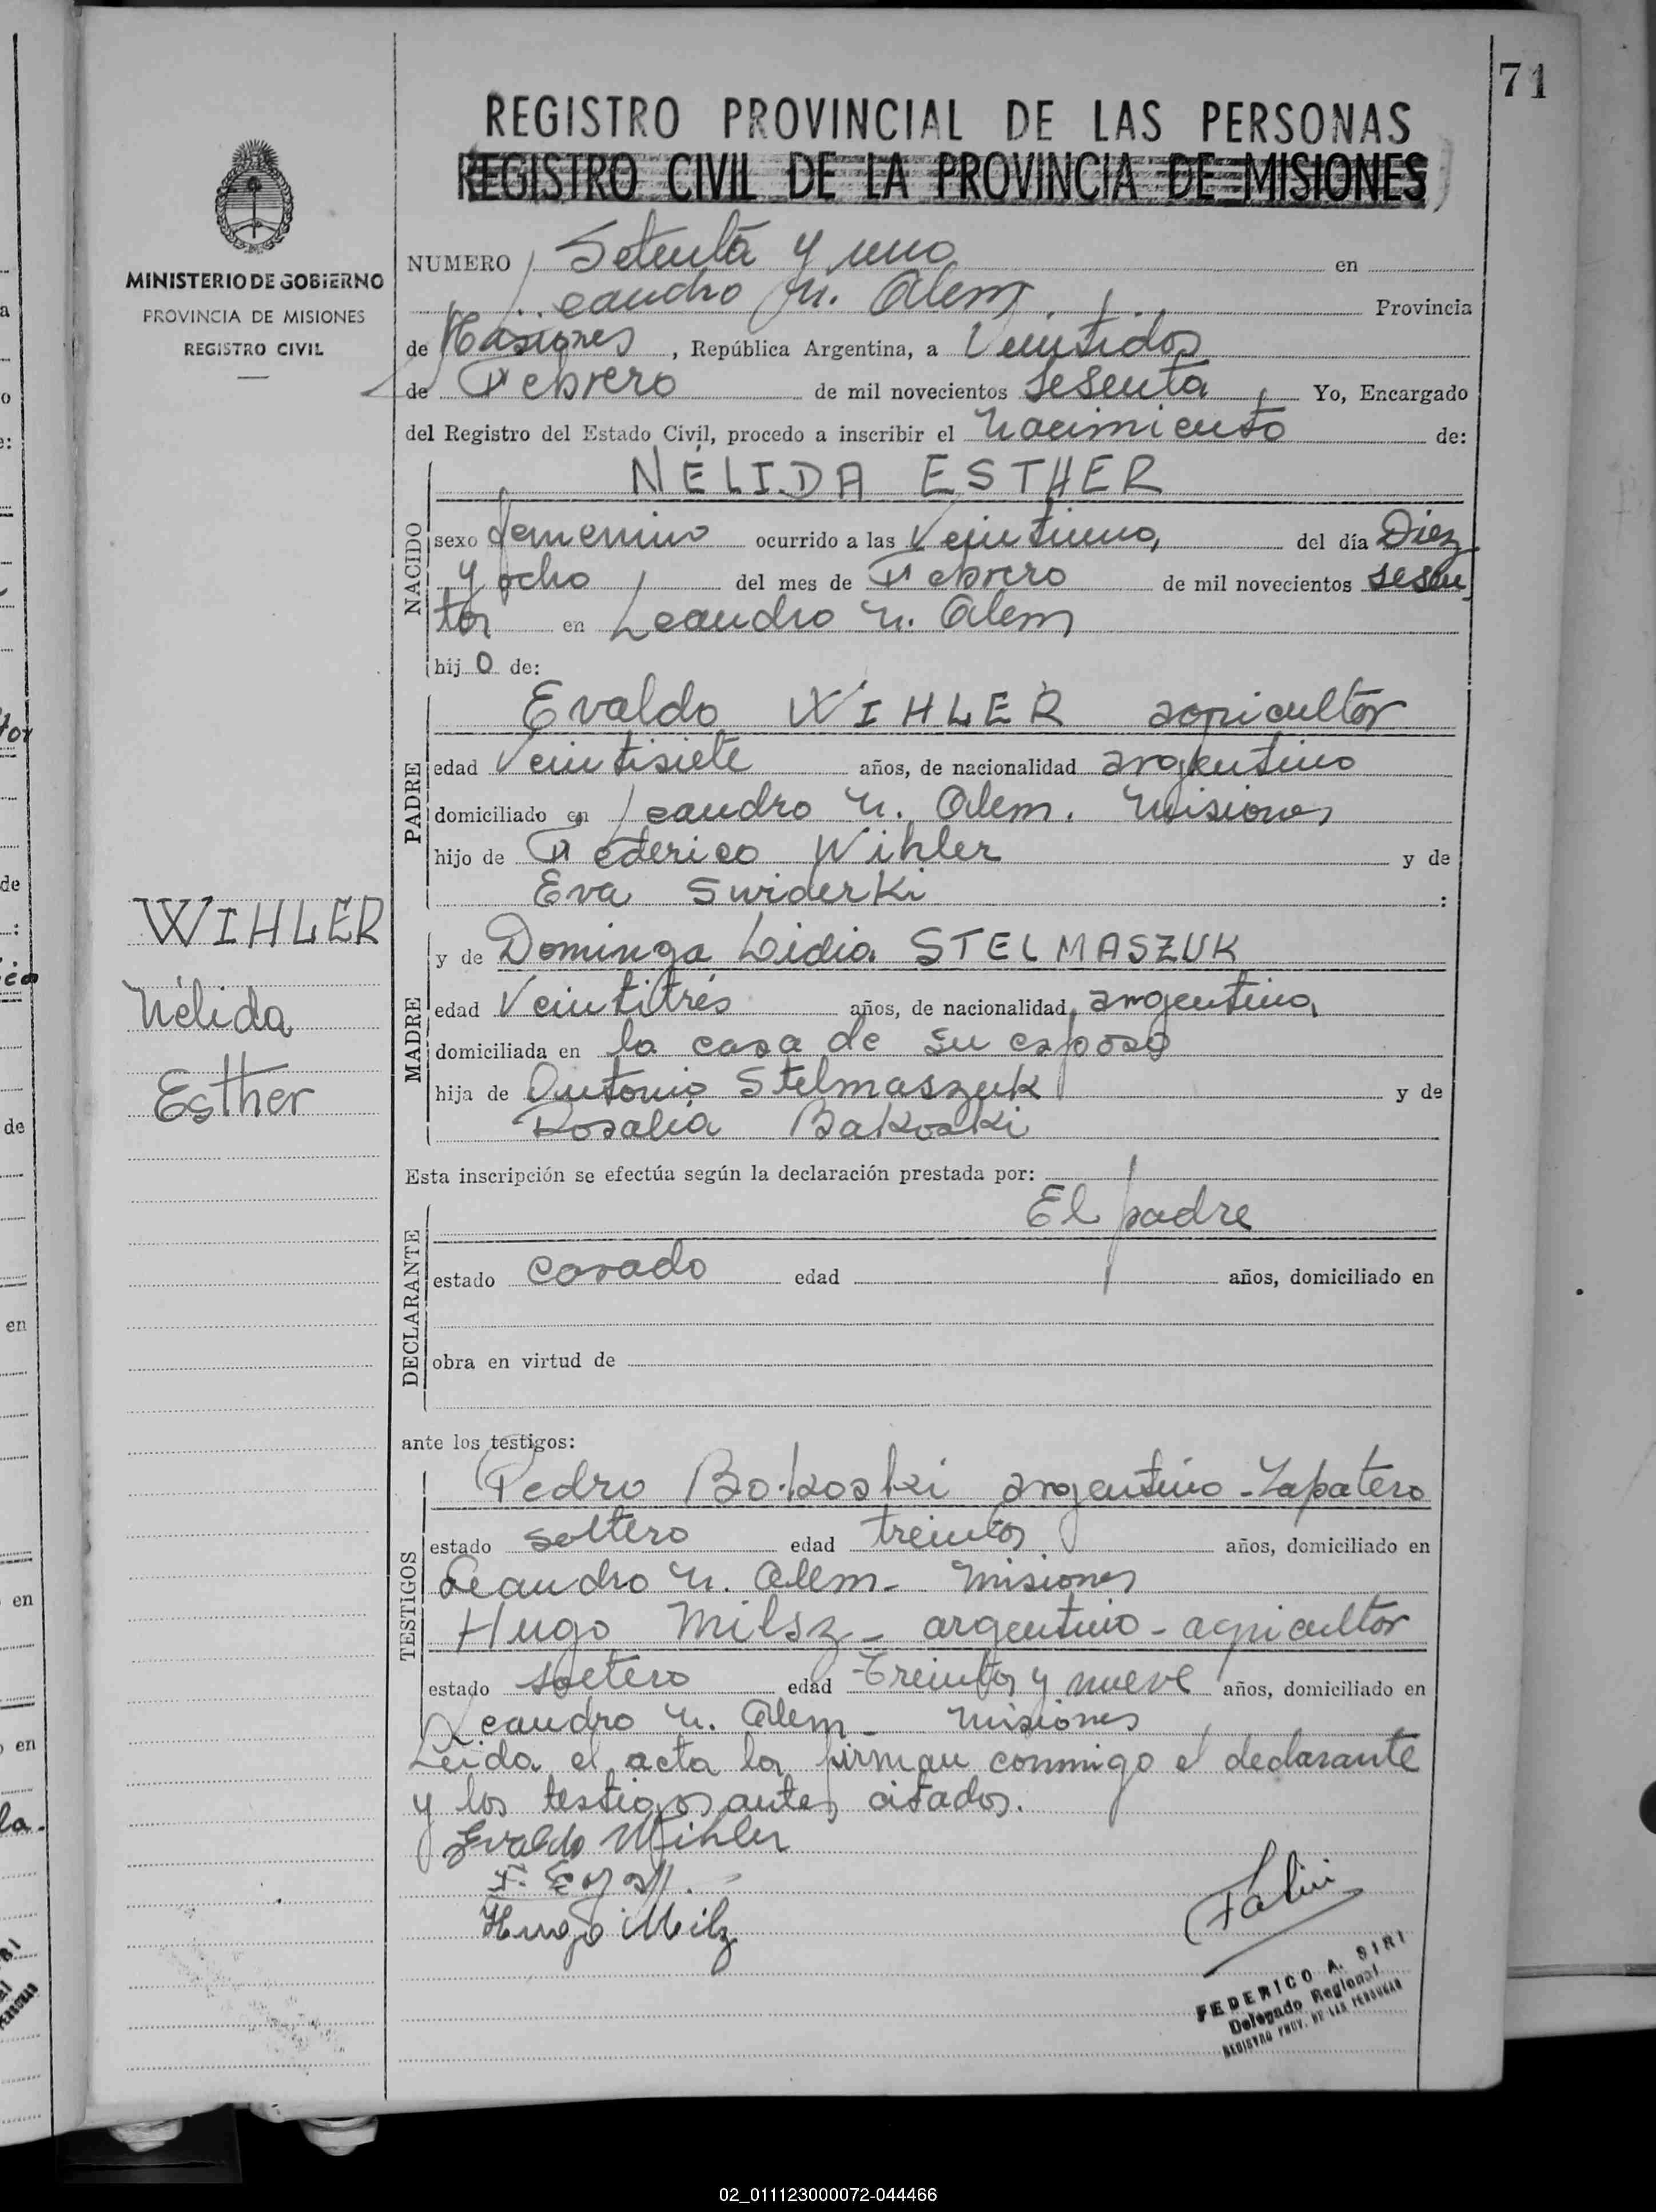 71
REGISTRO PROVINCIAL DE LAS PERSONAS
REGISTRO CIVIL DE LA PROVINCIA DE MISIONES
MINISTERIO DE GOBIERNO
PROVINCIA DE MISIONES
REGISTRO CIVIL
NUMERO Setenta y uno en
Leandro N. Alem Provincia
de Misiones, República Argentina, a Veintidos
de Febrero de mil novecientos sesenta Yo, Encargado
del Registro del Estado Civil, procedo a inscribir el nacimiento de:
NACIDO
NÉLIDA ESTHER
sexo femenino ocurrido a las Veintiuna, del día Diez
y ocho del mes de Febrero de mil novecientos sesen
ta en Leandro N. Alem
hij o de:
PADRE
Evaldo WIHLER agricultor
edad Veintisiete años, de nacionalidad argentino
domiciliado en Leandro N. Alem. Misiones
hijo de Federico Wihler y de
Eva Swiderki :
WIHLER
Nélida
Esther
MADRE
y de Dominga Lidia STELMASZUK
edad Veintitrés años, de nacionalidad argentina,
domiciliada en la casa de su esposo
hija de Antonio Stelmaszuk y de
Rosalia Bakoski
Esta inscripción se efectúa según la declaración prestada por:
DECLARANTE
El padre
estado casado edad años, domiciliado en
obra en virtud de
ante los testigos:
TESTIGOS
Pedro Bakoski argentino - Zapatero
estado soltero edad treinta años, domiciliado en
Leandro N. Alem - Misiones
Hugo Milsz - argentino - agricultor
estado soltero edad Treinta y nueve años, domiciliado en
Leandro N. Alem - Misiones
Leida el acta la firman conmigo el declarante
y los testigos antes citados.
Evaldo Wihler
Hugo Milz
FEDERICO A. SIRI
Delegado Regional
REGISTRO PROV. DE LAS PERSONAS
02_011123000072-044466